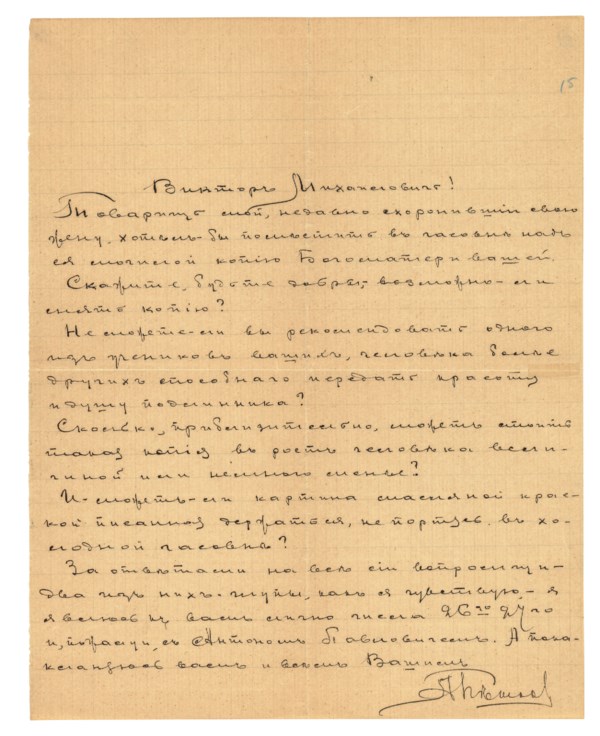 15
Викторъ Михайловичъ!
Товарищъ мой, недавно схоронившій свою
жену, хотѣлъ-бы помѣстить въ часовнѣ надъ
ея могилой копію Богоматери вашей.
Скажите, будьте добры, возможно-ли
снять копію?
Не можете-ли вы рекомендовать одного
изъ учениковъ вашихъ, человѣка болѣе
другихъ способнаго передать красоту
и душу подлинника?
Сколько, приблизительно, можетъ стоить
такая копія въ ростъ человѣка вели-
чиной или немного менѣе?
И-можетъ-ли картина масляной крас-
кой писанная держаться, не портясь, въ хо-
лодной часовнѣ?
За отвѣтами на всѣ сіи вопросищи-
два изъ нихъ-глупы, какъ я чувствую,-я
явлюсь къ вамъ лично числа 26го 27го
и, пожалуй, съ Антономъ Павловичемъ. А пока-
кланяюсь вамъ и всѣмъ Вашимъ
АПѣшков